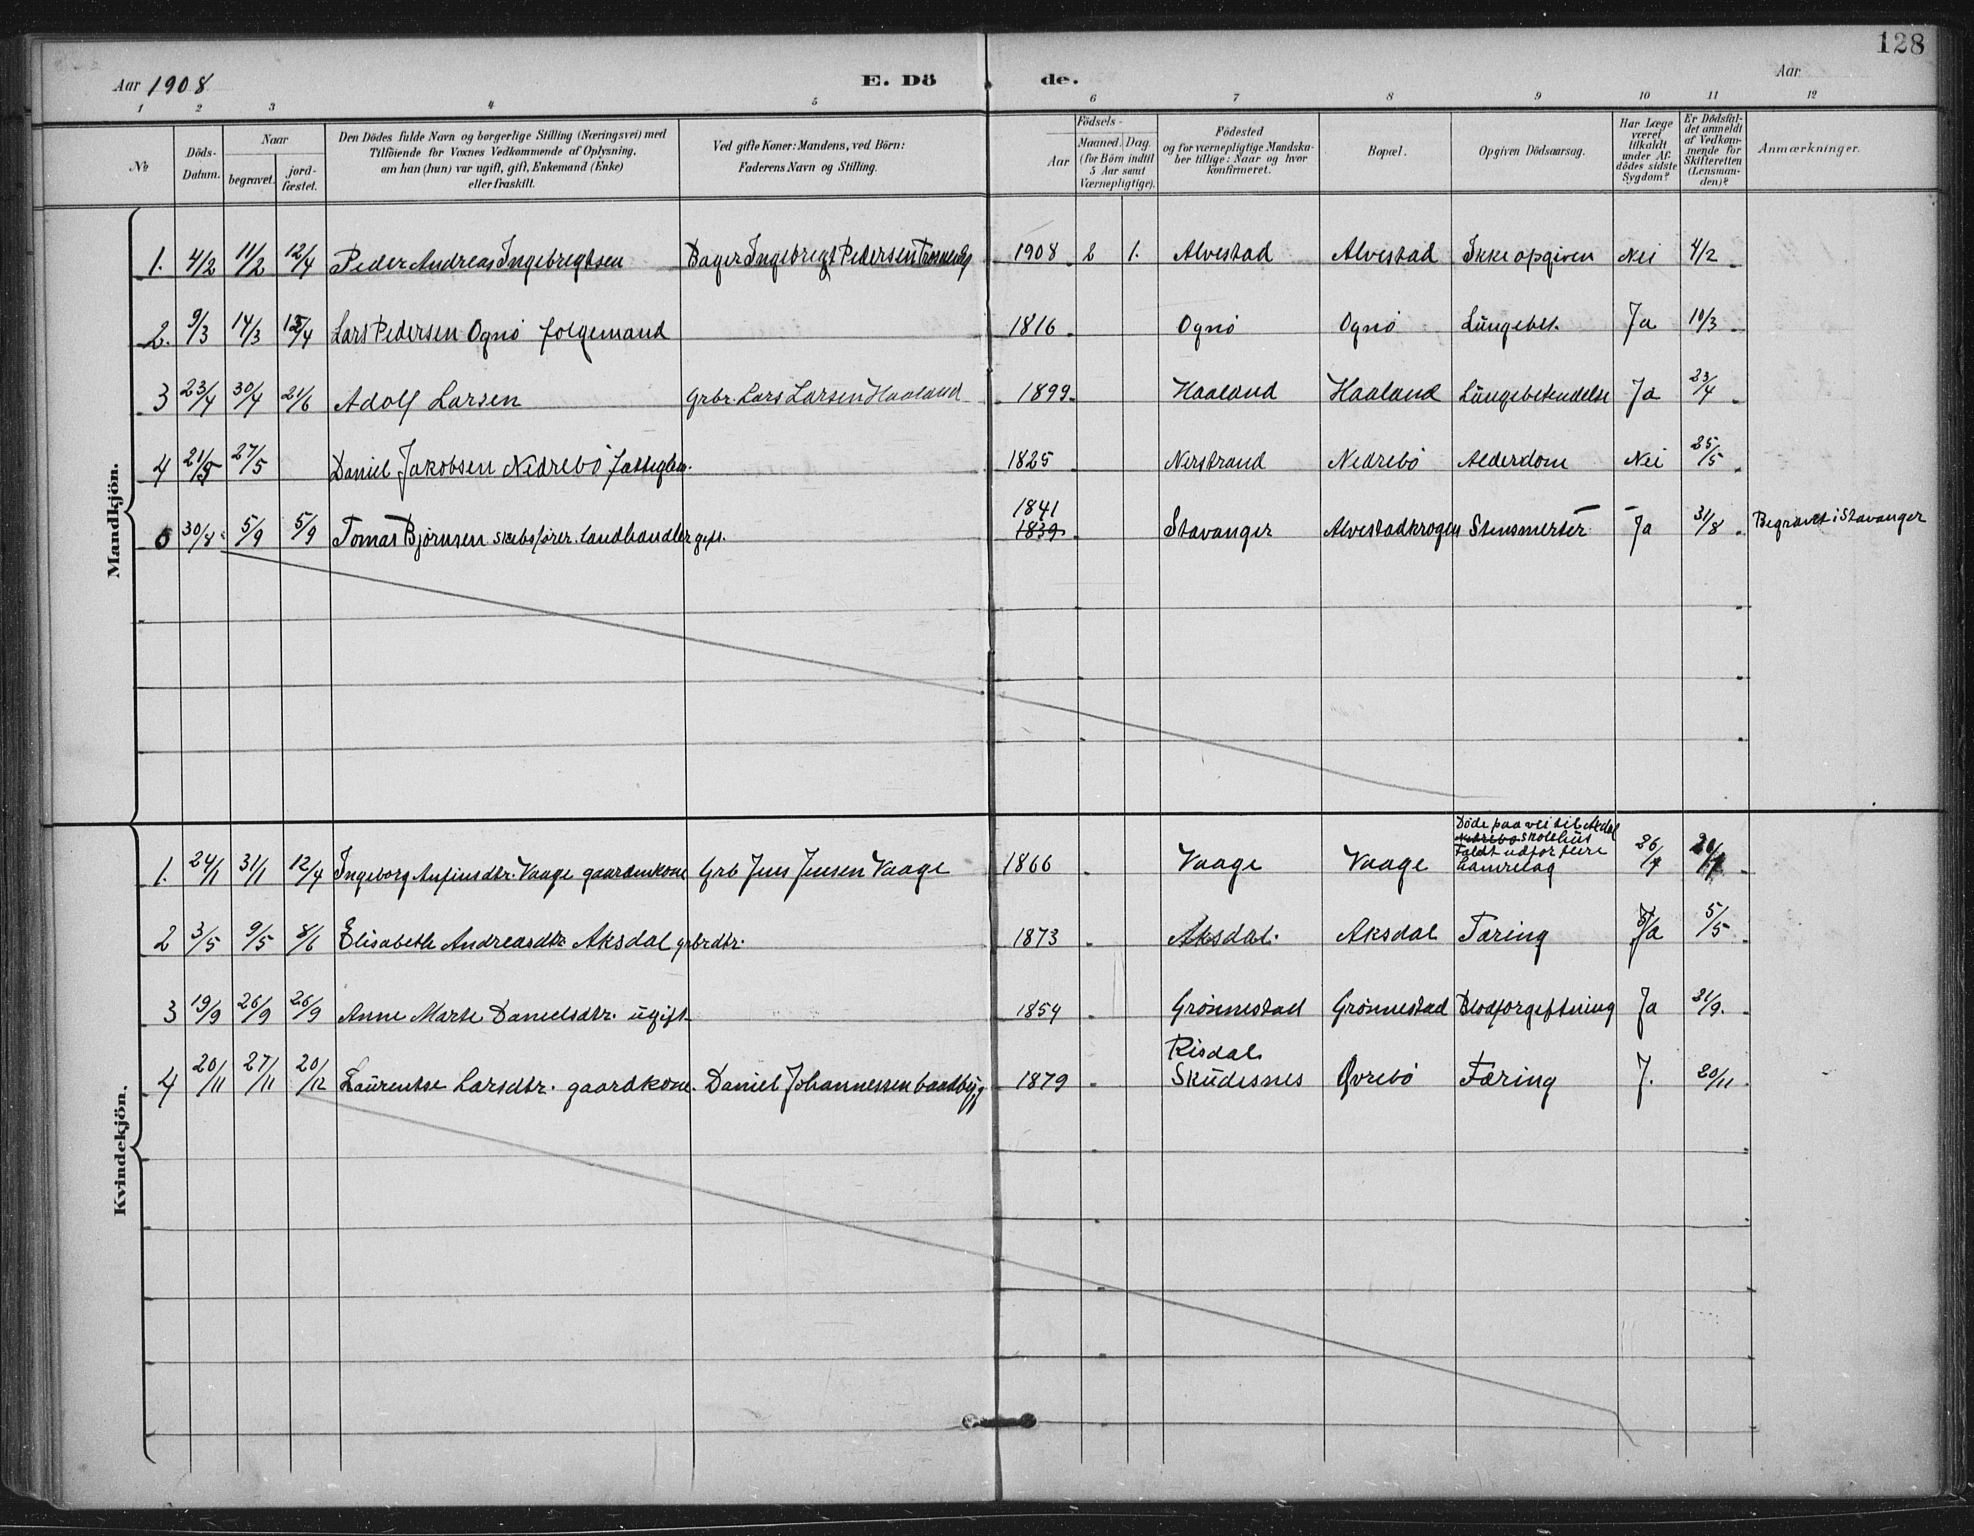 128
Aar 1908
E. Dö de.
Aar
1 2 3 4 5 6 7 8 9 10 11 12
No
Döds-Datum.
Naar
begravet.
jord-fæstet.
Den Dödes fulde Navn og borgerlige Stilling (Næringsvei) med
Tilföiende for Voxnes Vedkommende af Oplysning,
om han (hun) var ugift, gift, Enkemand (Enke)
eller fraskilt.
Ved gifte Koner: Mandens, ved Börn:
Faderens Navn og Stilling.
Födsels-
Aar
Maaned. Dag.
(for Börn indtil
5 Aar samt
Værnepligtige).
Födested
og for værnepligtige Mandska-
ber tillige: Naar og hvor
konfirmeret.
Bopæl.
Opgiven Dödsaarsag.
Har Læge
været
tilkaldt
under Af-
dödes sidste
Sygdom?
Er Dödsfal-
det anmeldt
af Vedkom-
mende for
Skifteretten
(Lensman-
den)?
Anmærkninger.
Mandkjön.
1. 4/2 11/2 12/4 Peder Andreas Ingebregtsen Bager Ingebregt Pedersen 1908 2 1. Alvestad Alvestad Ikke opgiven Nei 4/2
2. 9/3 14/3 12/4 Lars Pedersen Ognö folgemand 1816 Ognö Ognö Lungebet. Ja 10/3
3 23/4 30/4 21/6 Adolf Larsen Grbr. Lars Larsen Haaland 1899 Haaland Haaland Lungebetendelse Ja 23/4
4 21/5 27/5 Daniel Jakobsen Nedrebö fattiglem. 1825 Nerstrand Nedrebö Alderdom Nei 25/5
1841
5 30/8 5/9 5/9 Tomas Björnsen skibsförer. landhandler gift. 1839 Stavanger Alvestadkrogen Stensmerter Ja 31/8 Begravet i Stavanger
Kvindekjön.
Döde paa vei til Aksdal
Nedrebö skolehus
Faldt udfor
1. 24/1 31/1 12/4 Ingeborg Anfinsdtr. Vaage gaardmkone Grb Jens Jensen Vaage 1866 Vaage Vaage
2 3/5 9/5 8/6 Elisabeth Andreasdtr Aksdal grbrdtr. 1873 Aksdal. Aksdal Tæring Ja 5/5
3 19/9 26/9 26/9 Anne Marte Danielsdtr. ugift 1854 Grönnestad Grönnestad Blodforgiftning Ja 21/9.
Risdal
4 20/11 27/11 20/12 Laurentse Larsdtr. gaardkone. Daniel Johannessen baadbygg 1879 Skudesnes Øvrebö Tæring J. 20/11